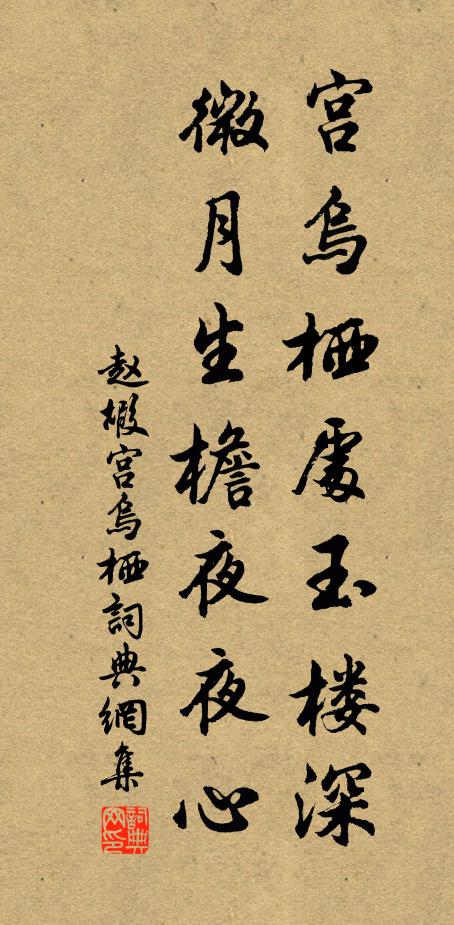 宫乌栖處玉楼深
微月生檐夜夜心
赵嘏宫乌栖詞典網集
詞典网印